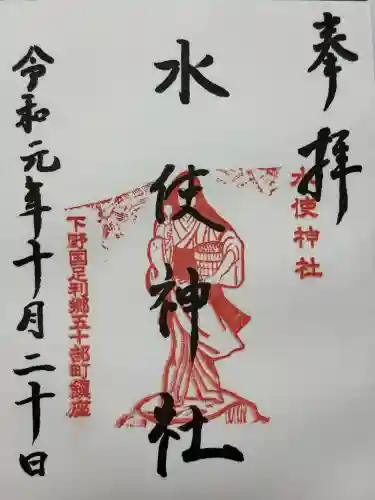 奉拝
水使神社
水使神社
下野国足利郷五十部町鎮座
令和元年十月二十日